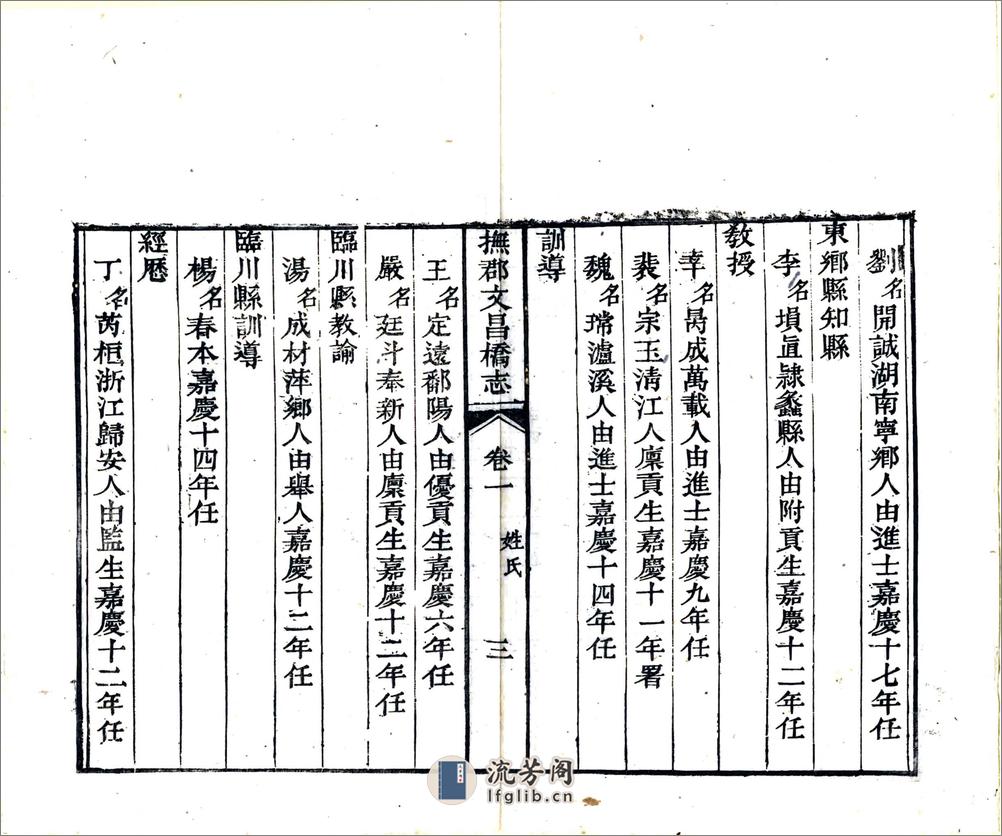 劉名開誠湖南寧鄉人由進士嘉慶十七年任
東鄉縣知縣
李名塤直隸蠡縣人由附貢生嘉慶十二年任
教授
辛名昺成萬載人由進士嘉慶九年任
裴名宗玉清江人廩貢生嘉慶十一年署
魏名瑺瀘溪人由進士嘉慶十四年任
訓導
撫郡文昌橋志 卷一 姓氏 三
王名定遠鄱陽人由優貢生嘉慶六年任
嚴名廷斗奉新人由廩貢生嘉慶十二年任
臨川縣教諭
湯名成材萍鄉人由舉人嘉慶十二年任
臨川縣訓導
楊名春本嘉慶十四年任
經歷
丁名芮柜浙江歸安人由監生嘉慶十二年任
流芳阁
lfglib.cn